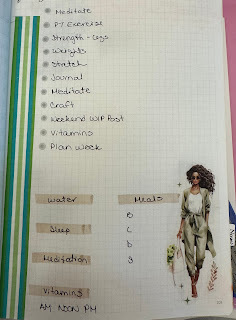 Meditate
PT Exercise
Strength - Legs
Weights
Stretch
Journal
Meditate
Craft
Weekend WIP Post
Vitamins
Plan Week
Water
Meals
B
Sleep
C
D
Meditation
S
Vitamins
AM NOON PM